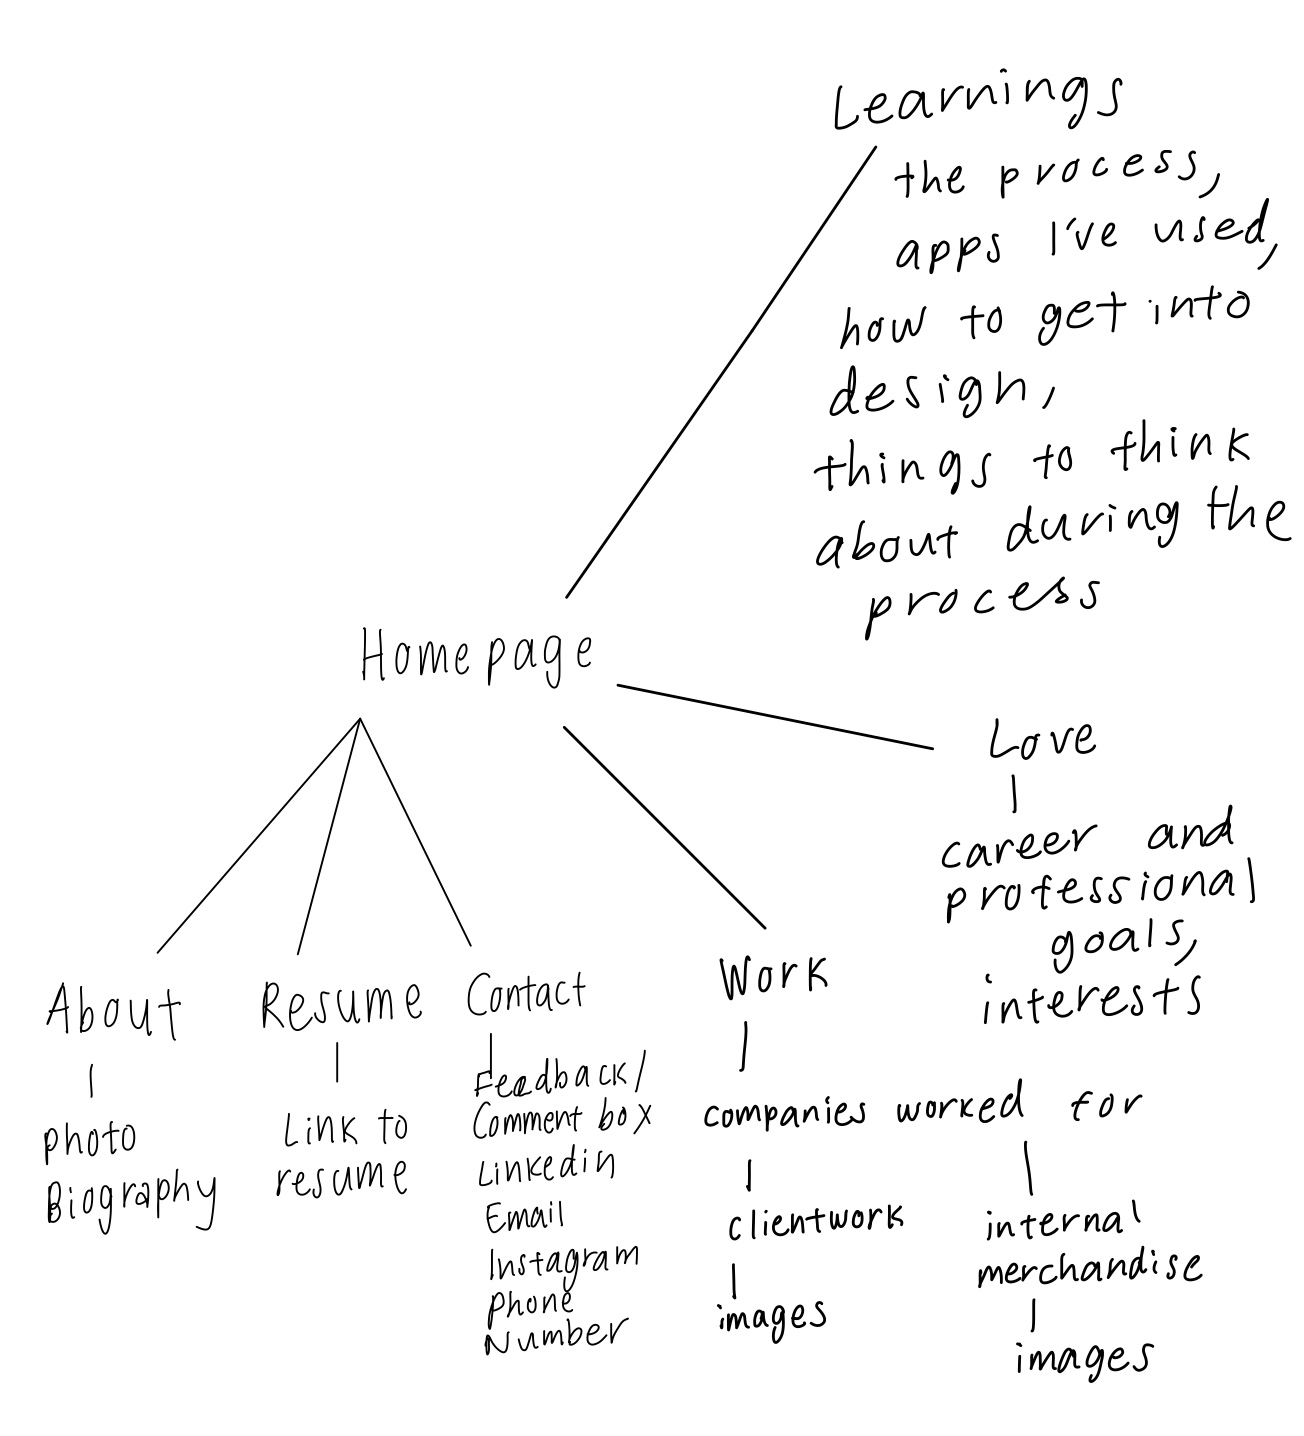 Learnings
the process,
apps I've used,
how to get into
design,
things to think
about during the
process
Homepage
Love
career and
professional
goals,
interests
About
photo
Biography
Resume
Link to
resume
Contact
Feedback/
Comment box
Linkedin
Email
Instagram
Phone
Number
Work
companies worked for
clientwork
images
internal
merchandise
images